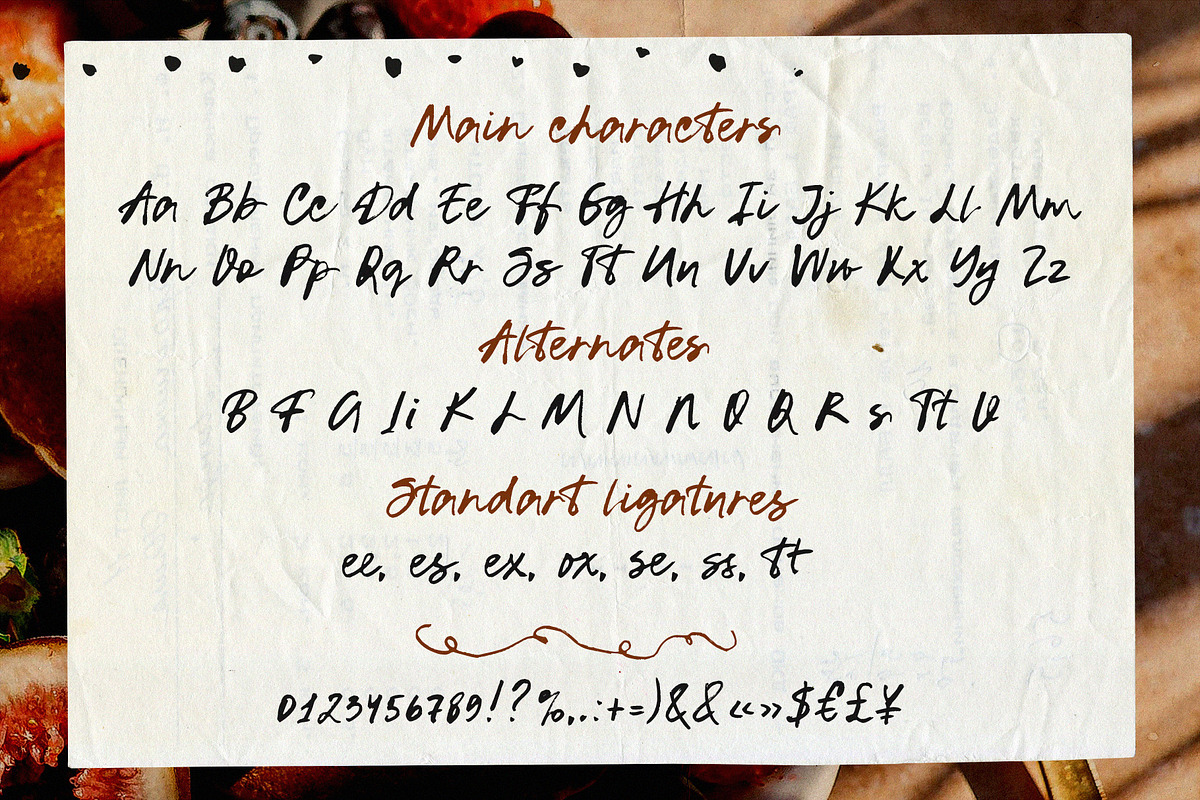 Main characters
Aa Bb Cc Dd Ee Ff Gg Hh Ii Jj Kk Ll Mm
Nn Oo Pp Qq Rr Ss Tt Uu Vv Ww Xx Yy Zz
Alternates
B F G Ii K L M N N O Q R s Tt U
Standart ligatures
ee, es, ex, ox, se, ss, tt
0123456789!?%,.:+=)&& «» $€££¥